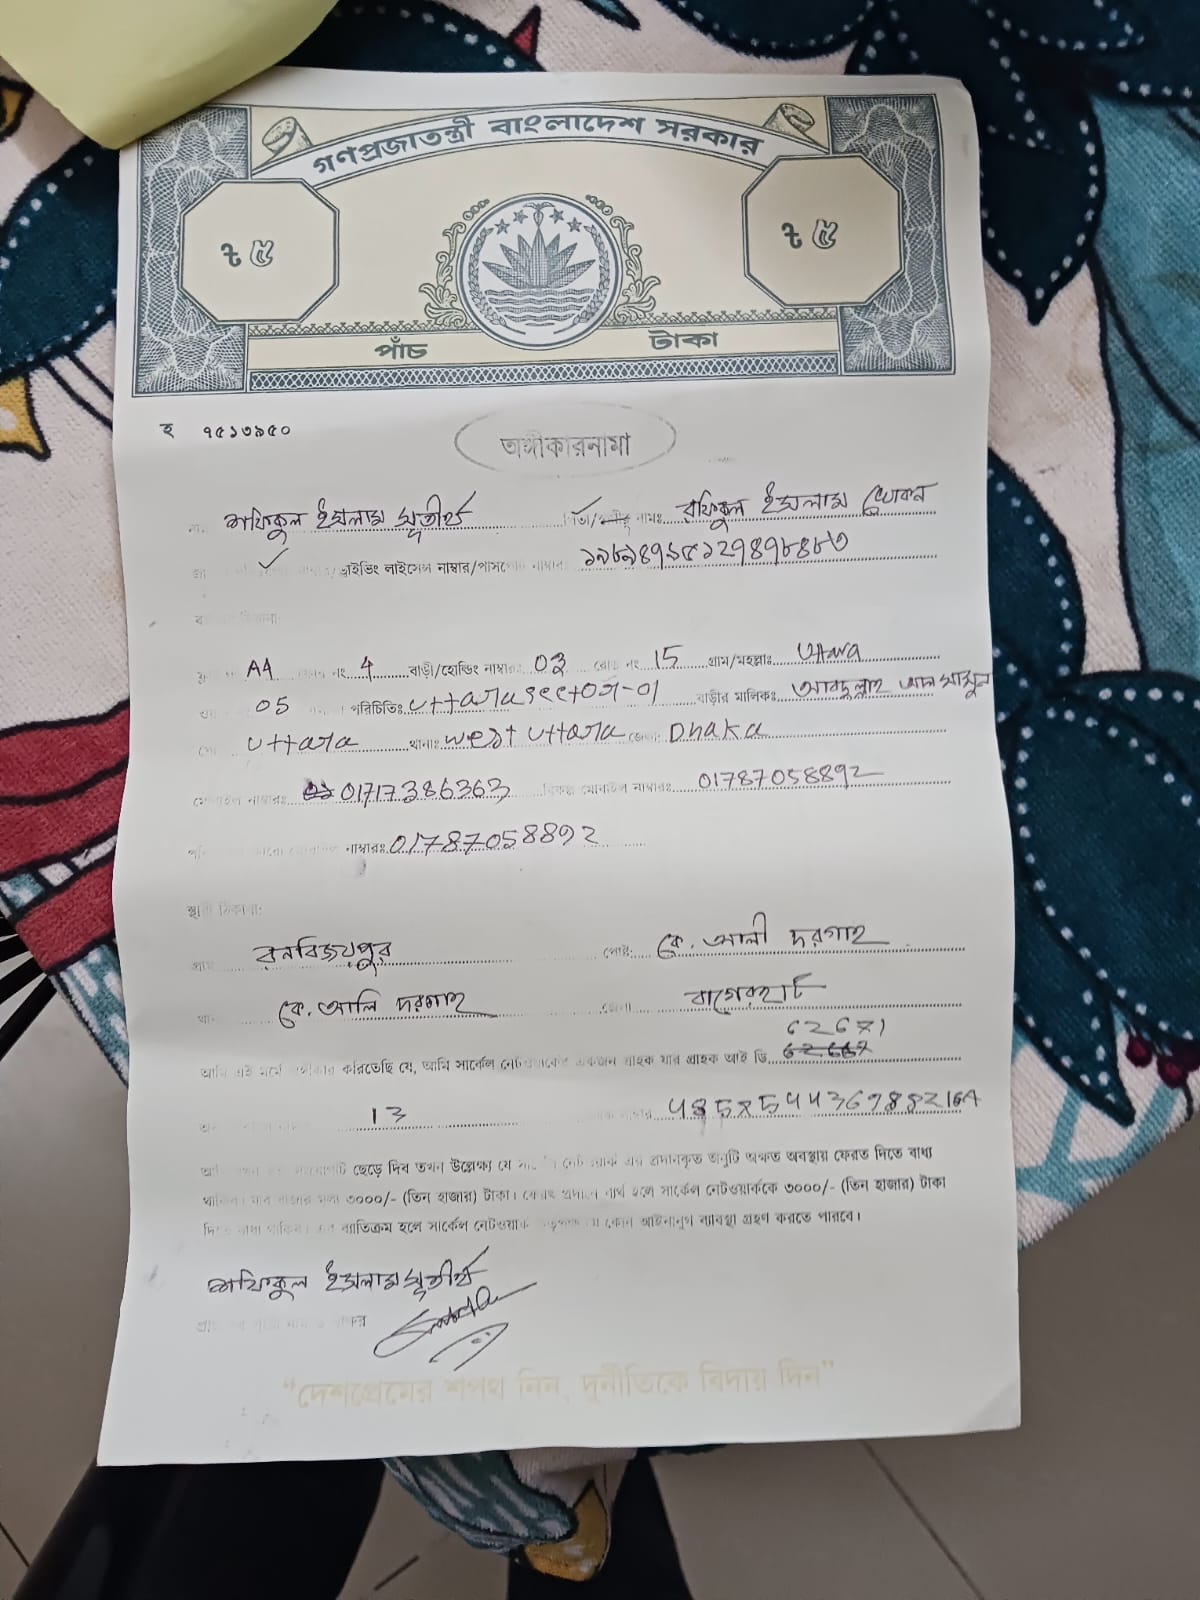 গণপ্রজাতন্ত্রী বাংলাদেশ সরকার
ট ৫ ট ৫
পাঁচ টাকা
হ ৭৫১৩৯৫০
অঙ্গীকারনামা
শফিকুল ইসলাম পিতা/ নামঃ রফিকুল ইসলাম খোকন
ড্রাইভিং লাইসেন্স নাম্বার/পাসপোর্ট নাম্বার
A4 নং 4 বাড়ী/হোল্ডিং নাম্বারঃ 03 রোড নং 15 গ্রাম/মহল্লাঃ Uttara
05 পরিচিতিঃ Uttara sector-01 বাড়ীর মালিকঃ আবদুল্লাহ আল মামুন
Uttara থানাঃ West Uttara জেলা Dhaka
মোবাইল নাম্বারঃ 01717386363 বিকল্প মোবাইল নাম্বারঃ 01787058892
নাম্বারঃ 01787058892
স্থায়ী ঠিকানা:
গ্রাম রনবিজয়পুর পোষ্ট: কে. আলী দরগাহ
থানা কে. আলি দরগাহ জেলা বাগেরহাট
62671
আমি এই মর্মে অঙ্গীকার করিতেছি যে, আমি সার্কেল নেটওয়ার্কের একজন গ্রাহক যার গ্রাহক আই ডি
13 নাম্বার
ছেড়ে দিব তখন উল্লেখ্য যে সার্কেল নেটওয়ার্ক এর প্রদানকৃত অনুটি অক্ষত অবস্থায় ফেরত দিতে বাধ্য
থাকিব। যার বাজার মূল্য ৩০০০/- (তিন হাজার) টাকা। ফেরৎ প্রদানে ব্যর্থ হলে সার্কেল নেটওয়ার্ককে ৩০০০/- (তিন হাজার) টাকা
দিতে বাধ্য থাকিব। এর ব্যাতিক্রম হলে সার্কেল নেটওয়ার্ক কর্তৃপক্ষ যে কোন আইনানুগ ব্যাবস্থা গ্রহণ করতে পারবে।
শফিকুল ইসলাম
"দেশপ্রেমের শপথ নিন, দুর্নীতিকে বিদায় দিন"